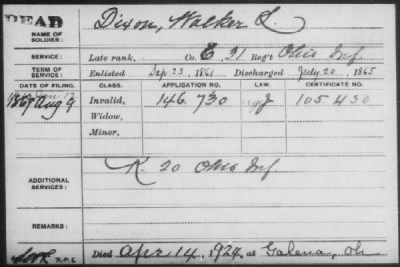 DEAD
NAME OF SOLDIER: Dixon, Walker L.
SERVICE: Late rank, Co. E 21 Reg't Ohio Inf.
TERM OF SERVICE: Enlisted Sep 23, 1861 Discharged July 20, 1865
DATE OF FILING. CLASS. APPLICATION NO. LAW. CERTIFICATE NO.
1867 Aug 9 Invalid, 146.730 J 105.430
Widow,
Minor,
ADDITIONAL SERVICES: K. 20 Ohio Inf.
REMARKS:
Died Apr 14, 1924, at Galena, Oh